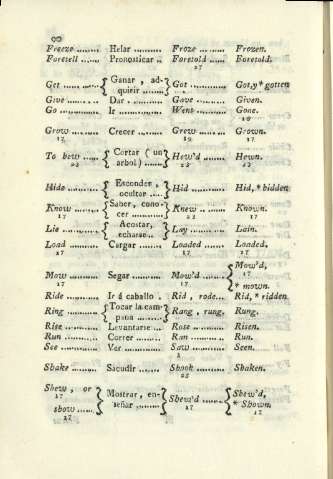 90
Freeze ........ Helar ........... Froze ......... Frozen.
Foretell ...... Pronosticar .. Foretold ...... Foretold.
17
Get ...... { Ganar , ad- quirir ....... } Got ........... Got, y * gotten
Give .......... Dar ............. Gave ......... Given.
Go ............ Ir ............... Went ......... Gone.
Grow ......... Crecer ......... Grew ......... Grown.
17 19 17
To hew ..... { Cortar ( un arbol) ....... } Hew'd ....... Hewn.
Hide ......... { Esconder , ocultar ..... } Hid ........... Hid, * bidden
Know ........ { Saber, cono- cer ........... } Knew ........ Known.
17 17
Lie ............ { Acostar, echarse... } Lay ........... Lain.
Load ......... Cargar ........ Loaded ...... Loaded.
17 17 17
Mow ......... Segar .......... Mow'd ....... { Mow'd, * mown.
17 17 17
Ride .......... Ir á caballo . Rid , rode... Rid, * ridden
Ring .......... { Tocar la cam- pana ........ } Rang , rung, Rung.
Rise ........... Levantarse ... Rose .......... Risen.
Run ........... Correr ........ Ran ........... Run.
See ............ Ver ............. Saw ........... Seen.
Shake ........ Sacudir ....... Shook ......... Shaken.
Shew , or show ...... { Mostrar, en- señar ........ } Shew'd ...... { Shew'd, * Shown.
17 17 17